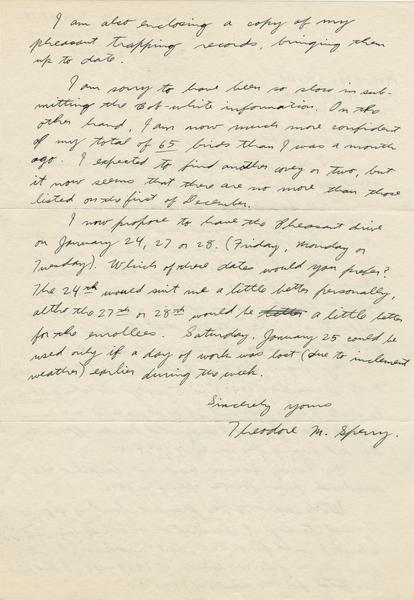 I am also enclosing a copy of my
pheasant trapping records, bringing them
up to date.
I am sorry to have been so slow in sub-
mitting the Bob-white information. On the
other hand, I am now much more confident
of my total of 65 birds than I was a month
ago. I expected to find another covey or two, but
it now seems that there are no more than those
listed on the first of December.
I now propose to have the Pheasant drive
on January 24, 27 or 28. (Friday, Monday or
Tuesday). Which of these dates would you prefer?
The 24th would suit me a little better personally,
altho the 27th or 28th would be better a little better
for the enrollees. Saturday, January 25 could be
used only if a day of work was lost (due to inclement
weather) earlier during the week.
Sincerely yours
Theodore M. Sperry.